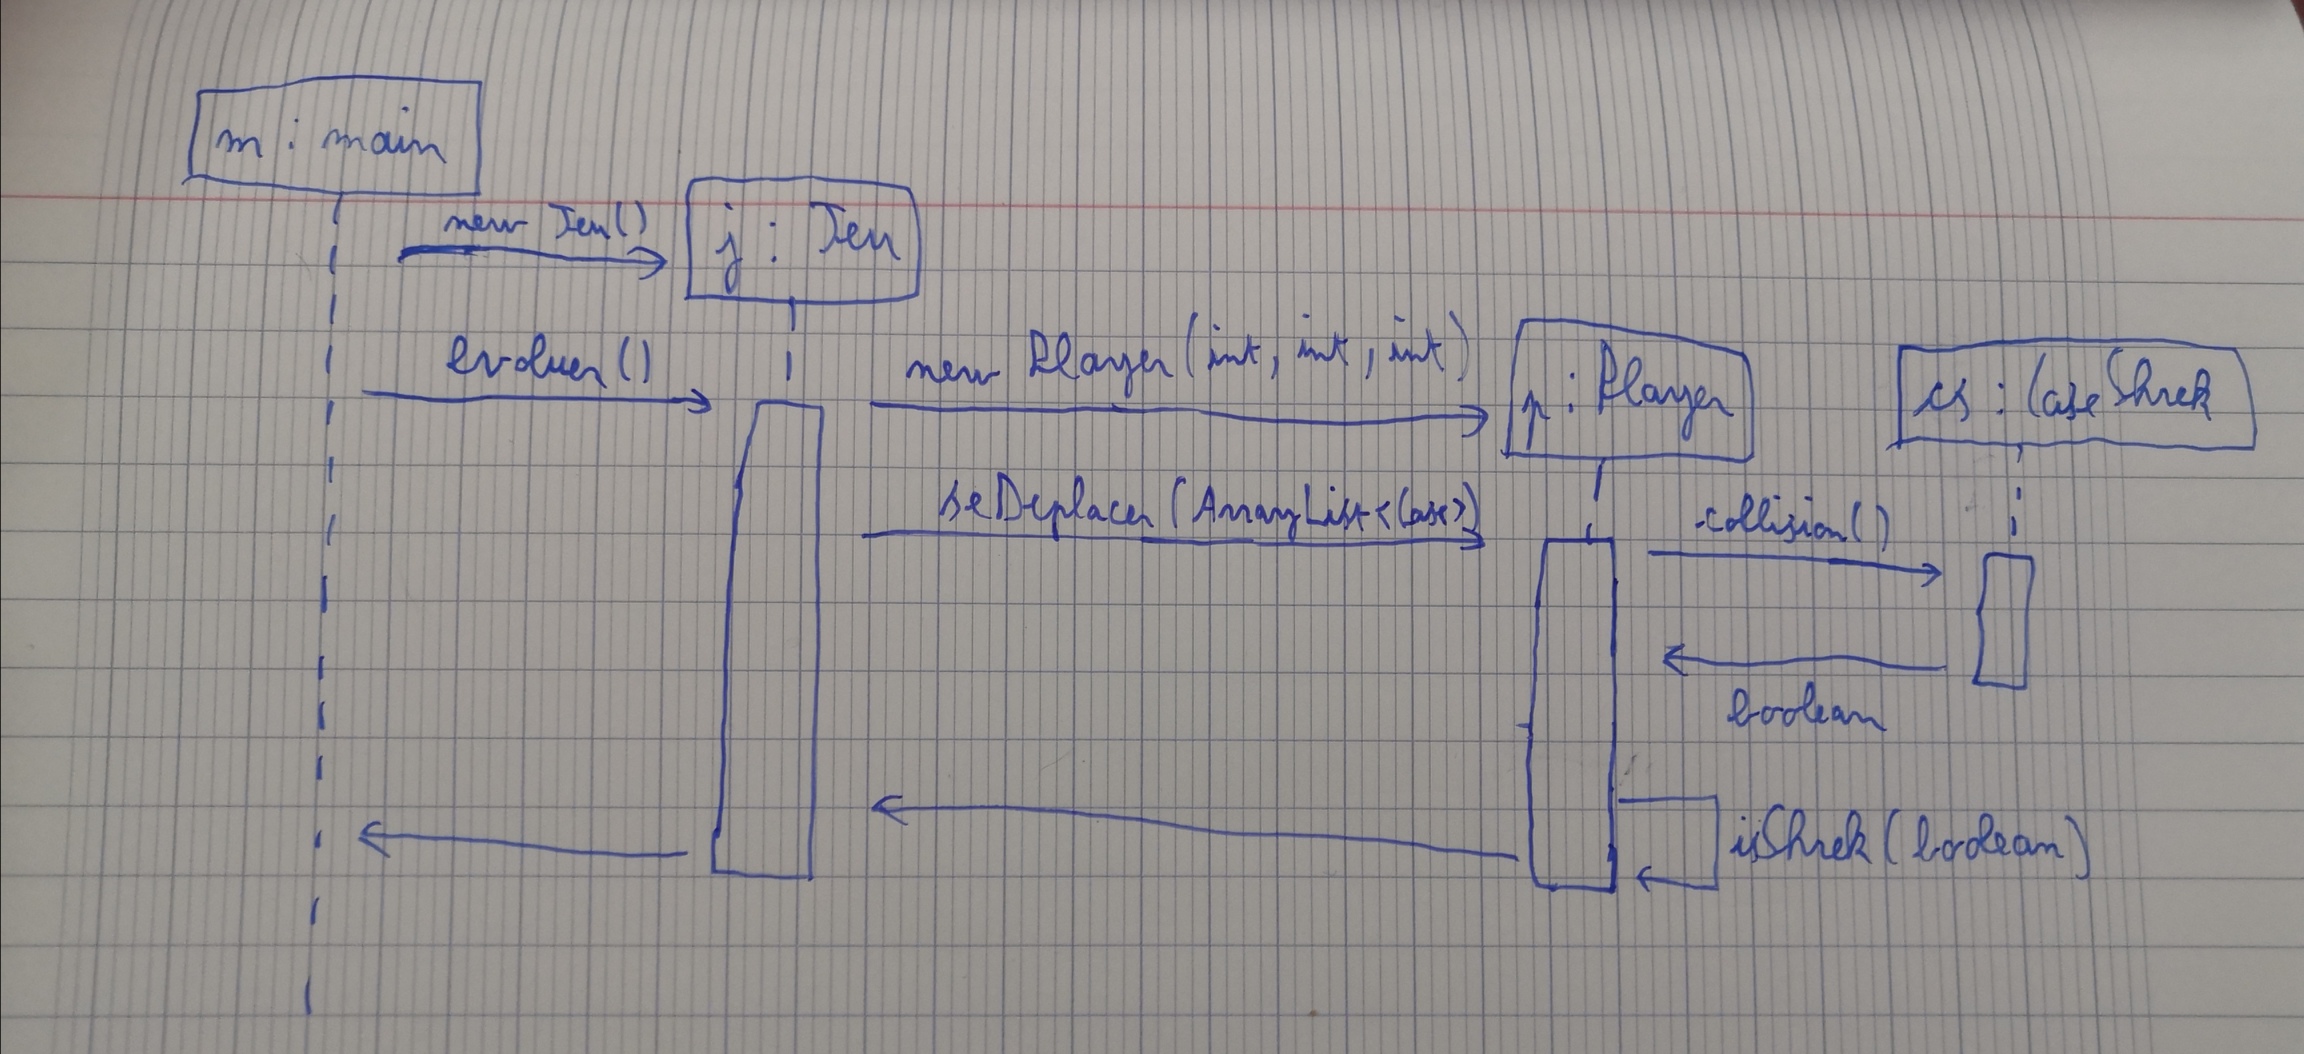 m : main
new Jeu()
j : Jeu
evoluer()
new Player(int, int, int)
p : Player
cs : CaseShrek
seDeplacer(ArrayList<Case>)
collision()
boolean
isShrek(boolean)